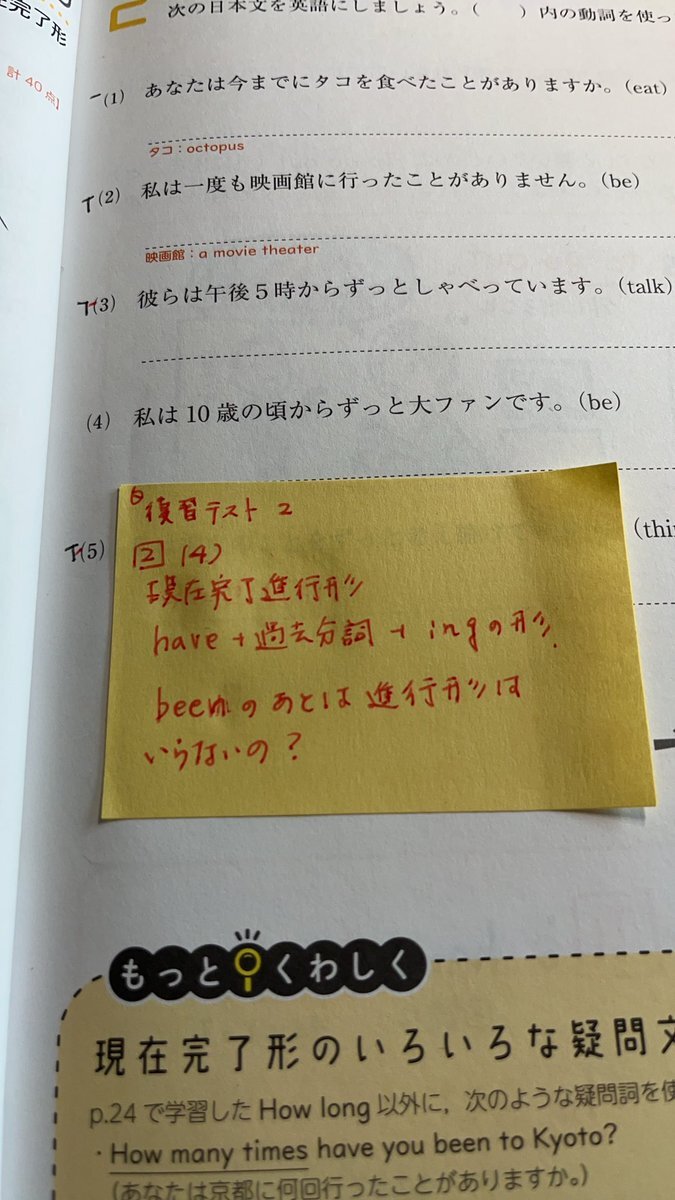 完了形
計40点】
2 次の日本文を英語にしましょう。( )内の動詞を使っ
(1) あなたは今までにタコを食べたことがありますか。(eat)
タコ：octopus
(2) 私は一度も映画館に行ったことがありません。(be)
映画館：a movie theater
(3) 彼らは午後5時からずっとしゃべっています。(talk)
(4) 私は10歳の頃からずっと大ファンです。(be)
(5)
復習テスト 2
2 (4)
現在完了進行形
have + 過去分詞 + ingの形
beenのあとは進行形は
いらないの？
もっとくわしく
現在完了形のいろいろな疑問文
p.24で学習した How long 以外に，次のような疑問詞を使
・How many times have you been to Kyoto?
(あなたは京都に何回行ったことがありますか。)